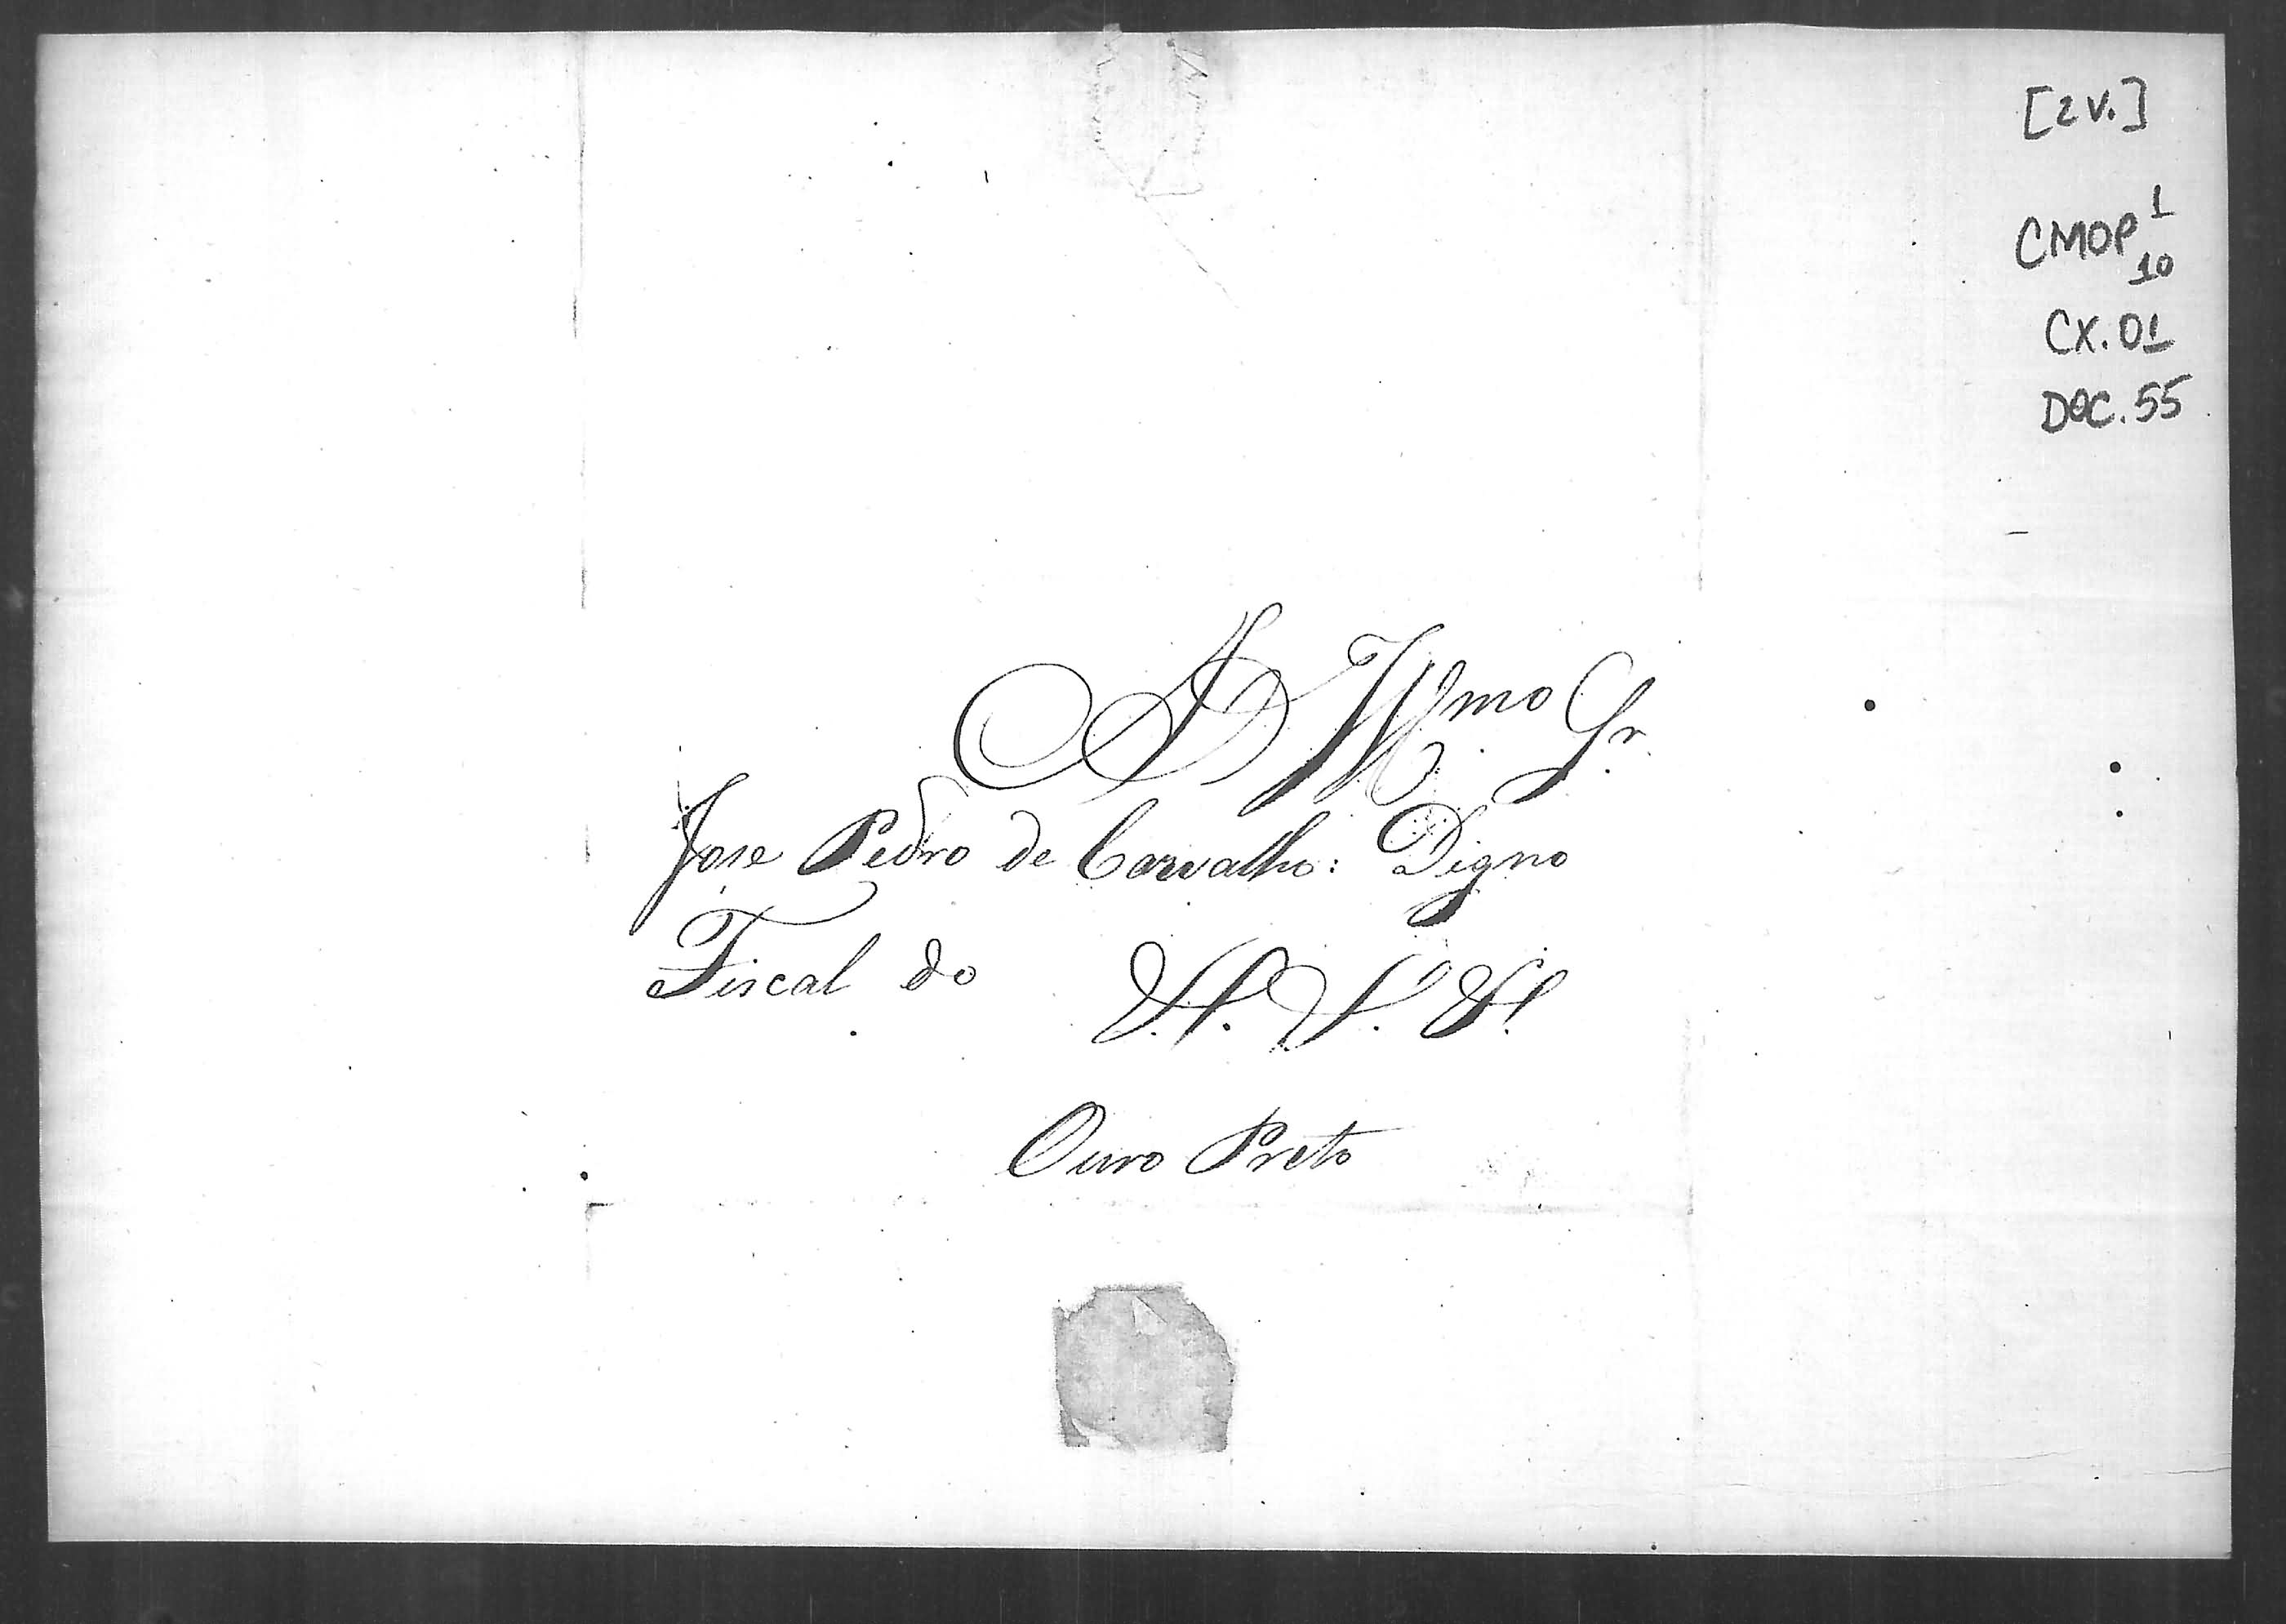 [2 V.]
CMOP 1
10
CX. 01
DOC. 55
Ao Illmo Sr.
Jose Pedro de Carvalho: Digno
Fiscal do
Ouro Preto